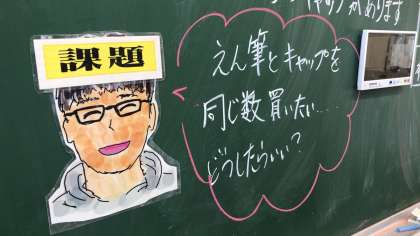 キャップがあります
課題
えん筆とキャップを
同じ数買いたい....
どうしたらいい?